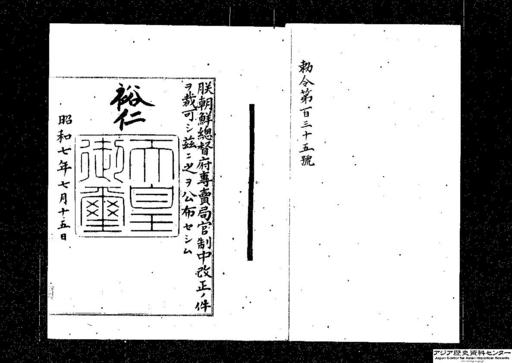 勅令第百三十五號
朕朝鮮總督府專賣局官制中改正ノ件
ヲ裁可シ茲ニ之ヲ公布セシム
裕仁
天皇
御璽
昭和七年七月十五日
アジア歴史資料センター
Japan Center for Asian Historical Records